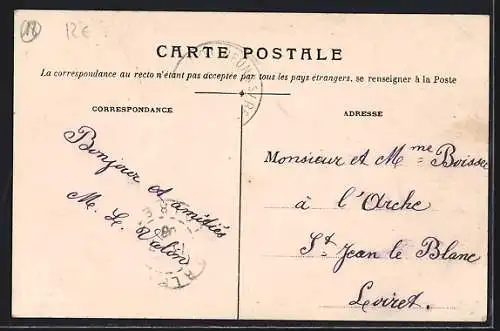 12E
CARTE POSTALE
La correspondance au recto n'étant pas acceptée par tous les pays étrangers, se renseigner à la Poste
CORRESPONDANCE
Bonjour et amitiés
M. L.
ADRESSE
Monsieur et Mme Boissec
à l'Arche
St Jean le Blanc
Loiret.